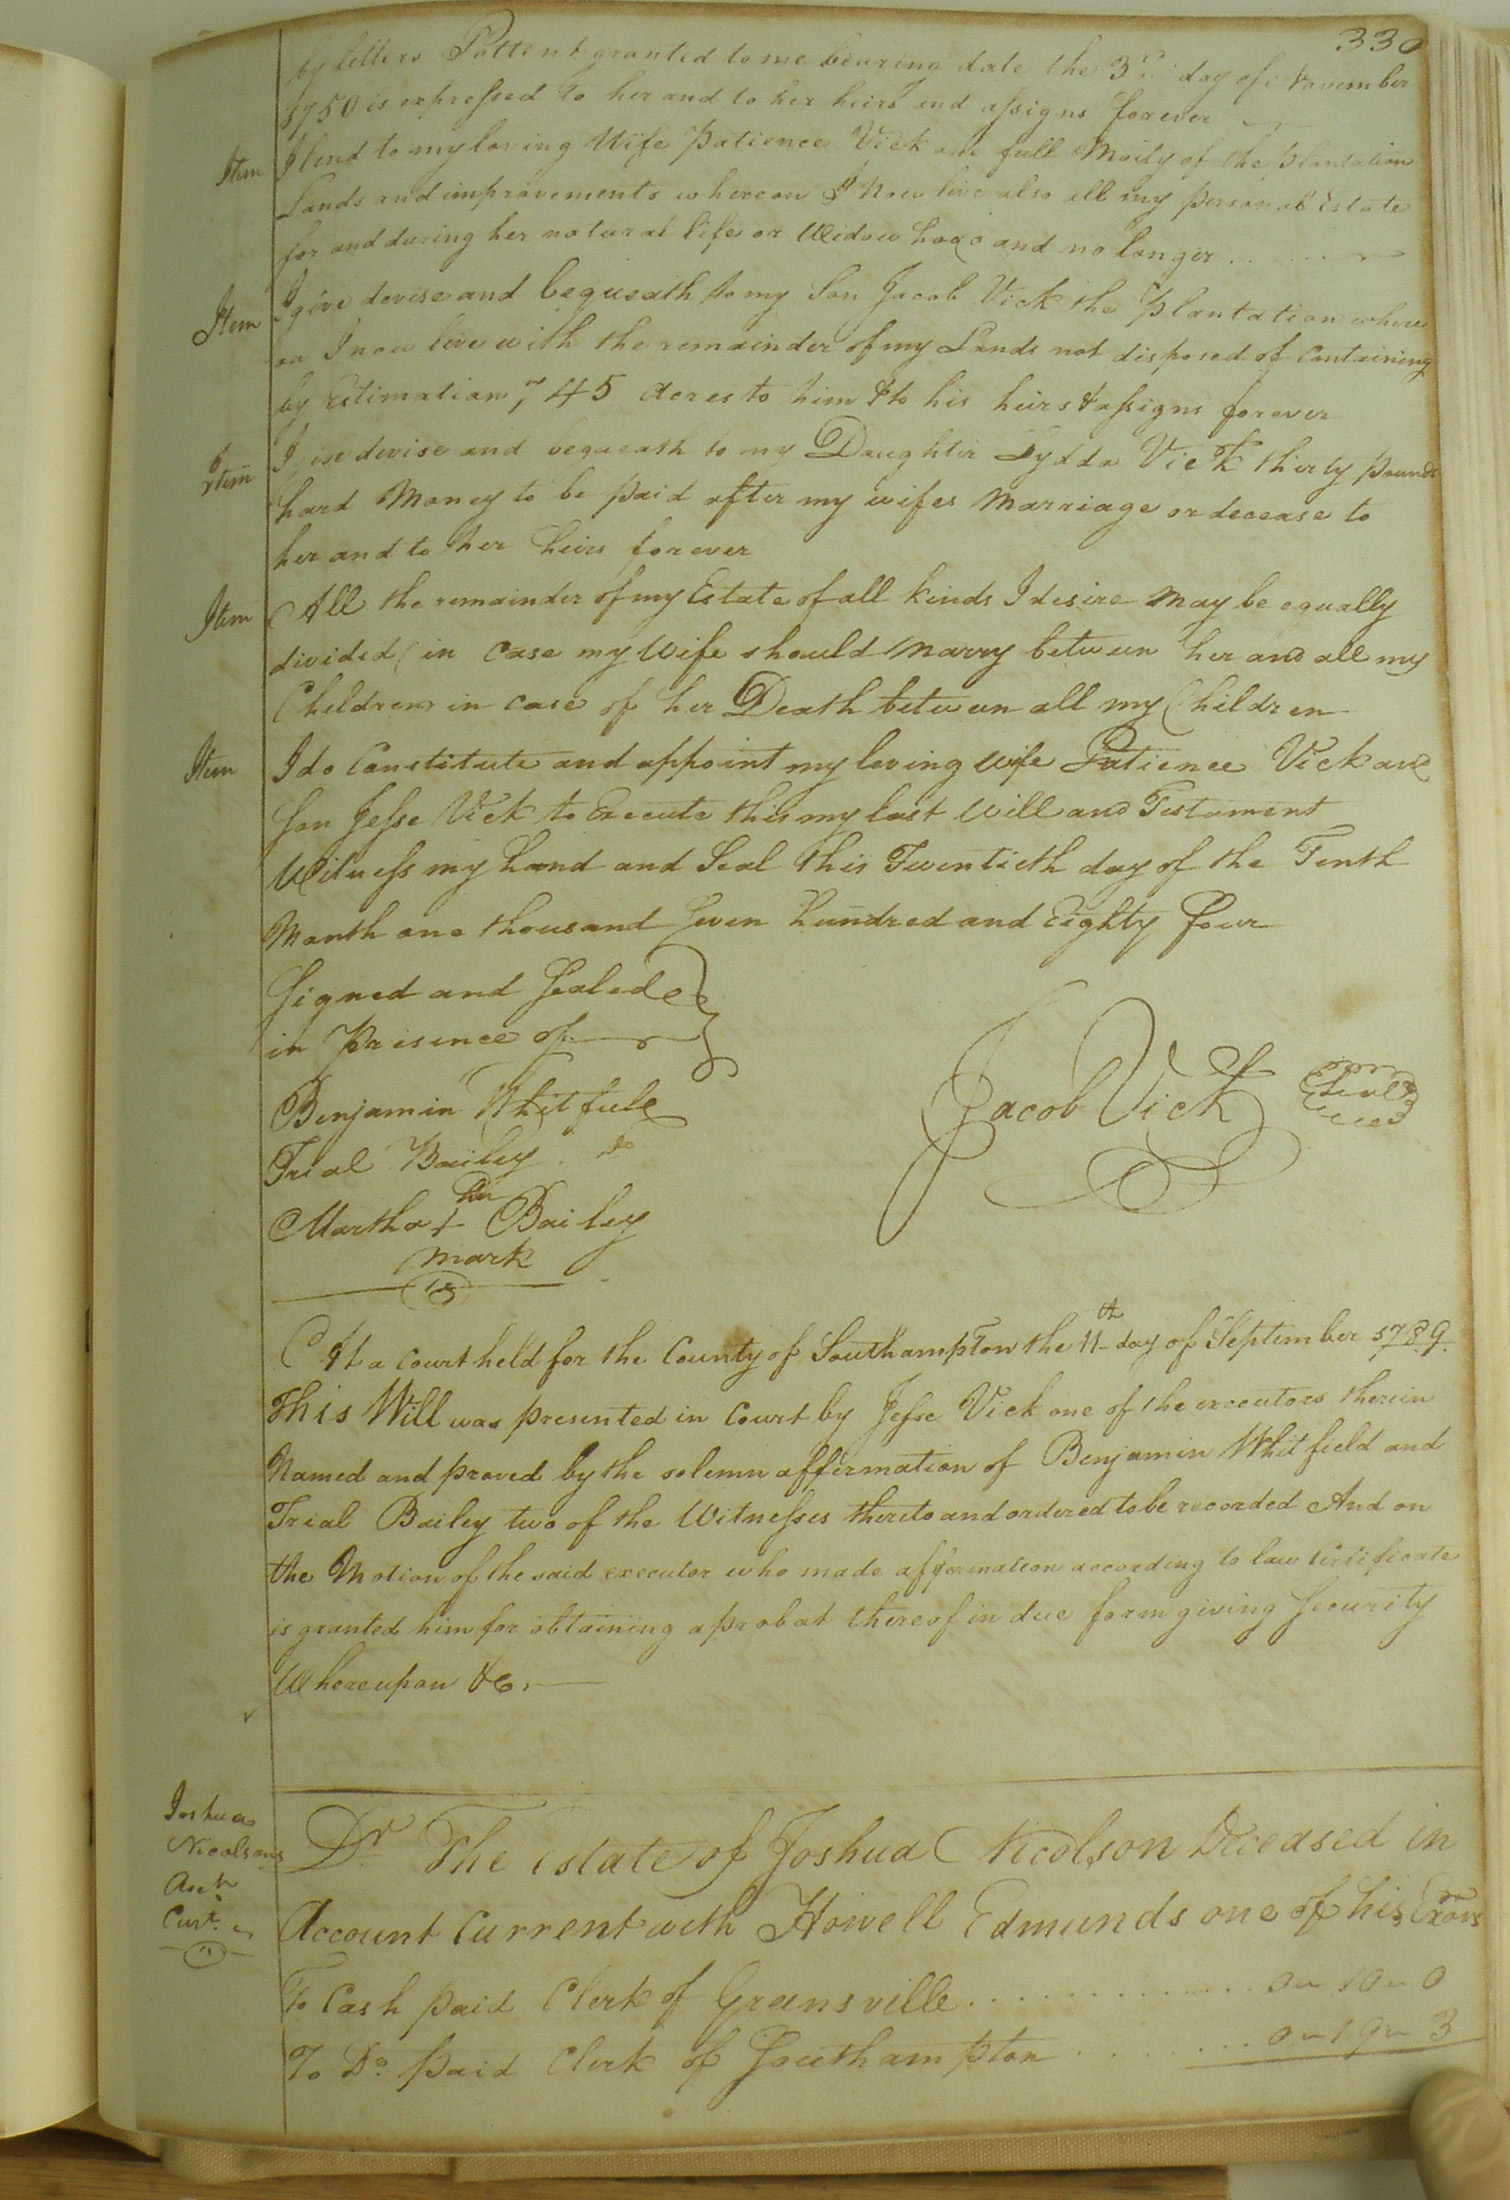 330
by letters Pattent granted to me bearing date the 3rd day of November
1750 is expressed to her and to her heirs and assigns forever
Item I lend to my loving Wife Patience Vick one full Moity of the plantation
Lands and improvements whereon I Now live also all my personal Estate
for and during her natural life or Widow hood and no longer
Item I give devise and bequeath to my Son Jacob Vick the Plantation where
on I now live with the remainder of my Lands not disposed of Containing
by Estimation 145 Acres to him & to his heirs & assigns forever
Item I give devise and bequeath to my Daughter Lydda Vick thirty pounds
hard Money to be paid after my wifes Marriage or decease to
her and to her heirs forever
Item All the remainder of my Estate of all kinds I desire May be equally
divided (in Case my Wife should Marry between her and all my
Children in case of her Death between all my Children
Item I do Constitute and appoint my loving wife Patience Vick and
Son Jesse Vick to Execute this my last Will and Testament
Witness my hand and Seal this Twentieth day of the Tenth
Month one thousand Seven hundred and Eighty four
Signed and Sealed
in Presence of
Benjamin Whitfield
Jacob Vick Seal
Trial Bailey
her
Martha + Bailey
mark
At a Court held for the County of Southampton the 11th day of September 1789.
This Will was presented in Court by Jesse Vick one of the executors therein
Named and proved by the solemn affirmation of Benjamin Whitfield and
Trial Bailey two of the Witnesses thereto and ordered to be recorded And on
the Motion of the said executor who made affirmation according to law Certificate
is granted him for obtaining a probat thereof in due form giving Security
Whereupon &c.
Joshua
Nicolsons
Acct
Curt.
Dr The Estate of Joshua Nicolson Deceased in
Account Current with Howell Edmunds one of his Exors
To Cash paid Clerk of Greensville . . . . . . . . . . . . . . 0 " 10 " 0
To Do. paid Clerk of Southampton . . . . . . . . 0 " 19 " 3